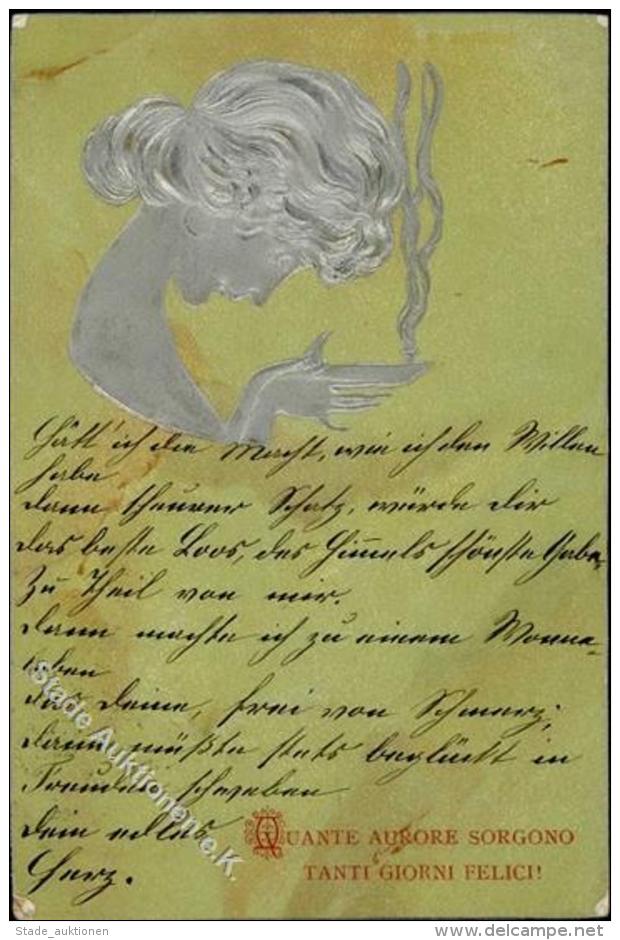 Hätt' ich die Macht, wie ich den Willen
habe
dann theurer Schatz, würde dir
das beste Loos, des Himmels schönste Gabe,
Zu Theil von mir.
dann machte ich zu einem Wonne-
leben
das deine, frei von Schmerz,
dann müßte stets beglückt in
Freuden schweben
dein edles
Herz.
QUANTE AURORE SORGONO
TANTI GIORNI FELICI!
Stade Auktionen e.K.
Stade_auktionen
www.delcampe.net